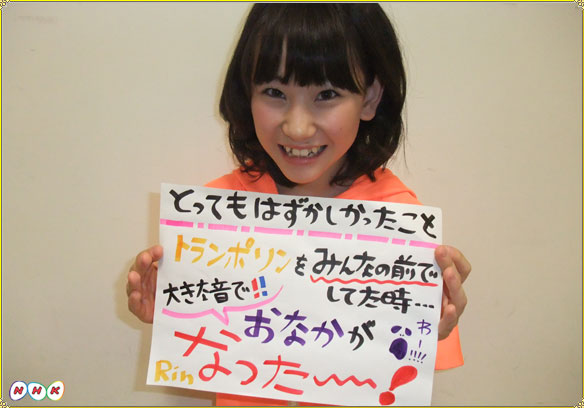 とってもはずかしかったこと
トランポリンをみんなの前で
してた時…
大きな音で!!
おなかが
わー!!!!
なった〜〜!
Rin
NHK